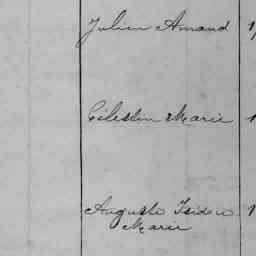 Julien Amand 1
Célestin Marie 1
Auguste Isidore 1
Marie